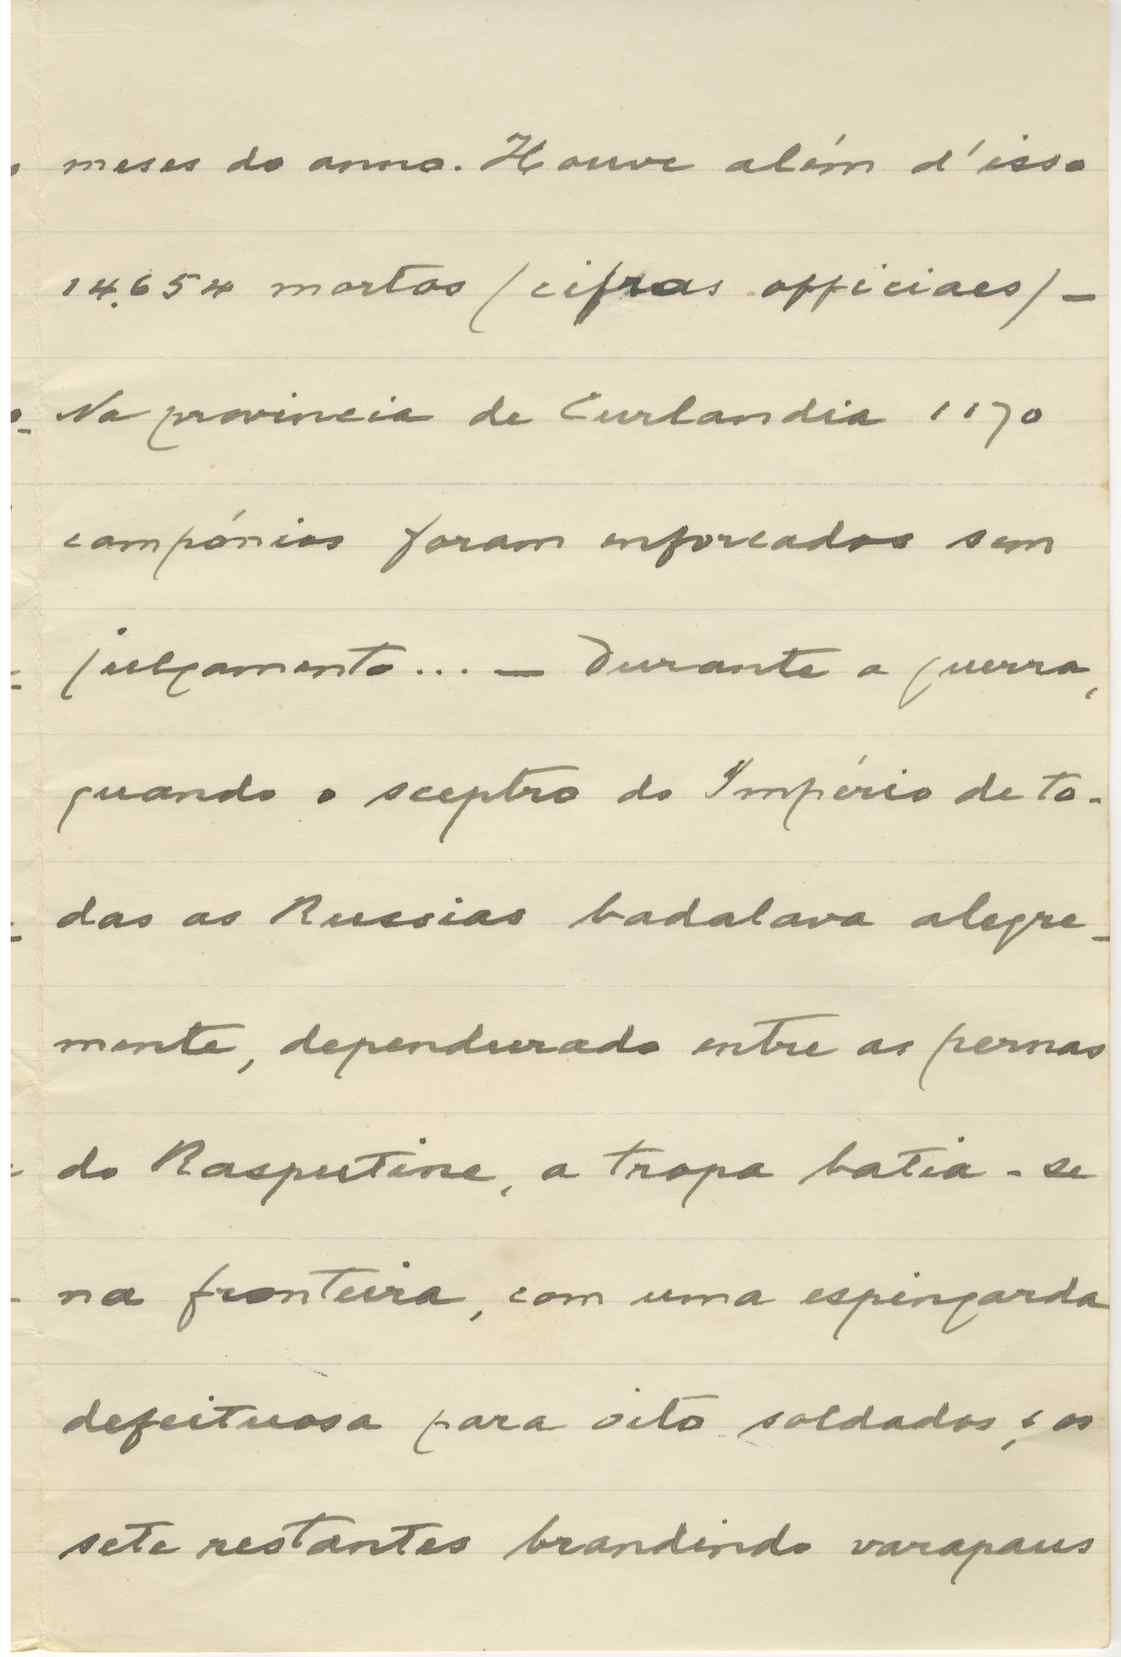 meses do anno. Houve além d'isso
14.654 mortos (cifras officiaes) —
Na provincia de Curlandia 1170
campónios foram enforcados sem
julgamento... — Durante a guerra,
quando o sceptro do Império de to-
das as Russias badalava alegre-
mente, dependurado entre as pernas
do Rasputine, a tropa batia-se
na fronteira, com uma espingarda
defeituosa para oito soldados, e os
sete restantes brandindo varapaus